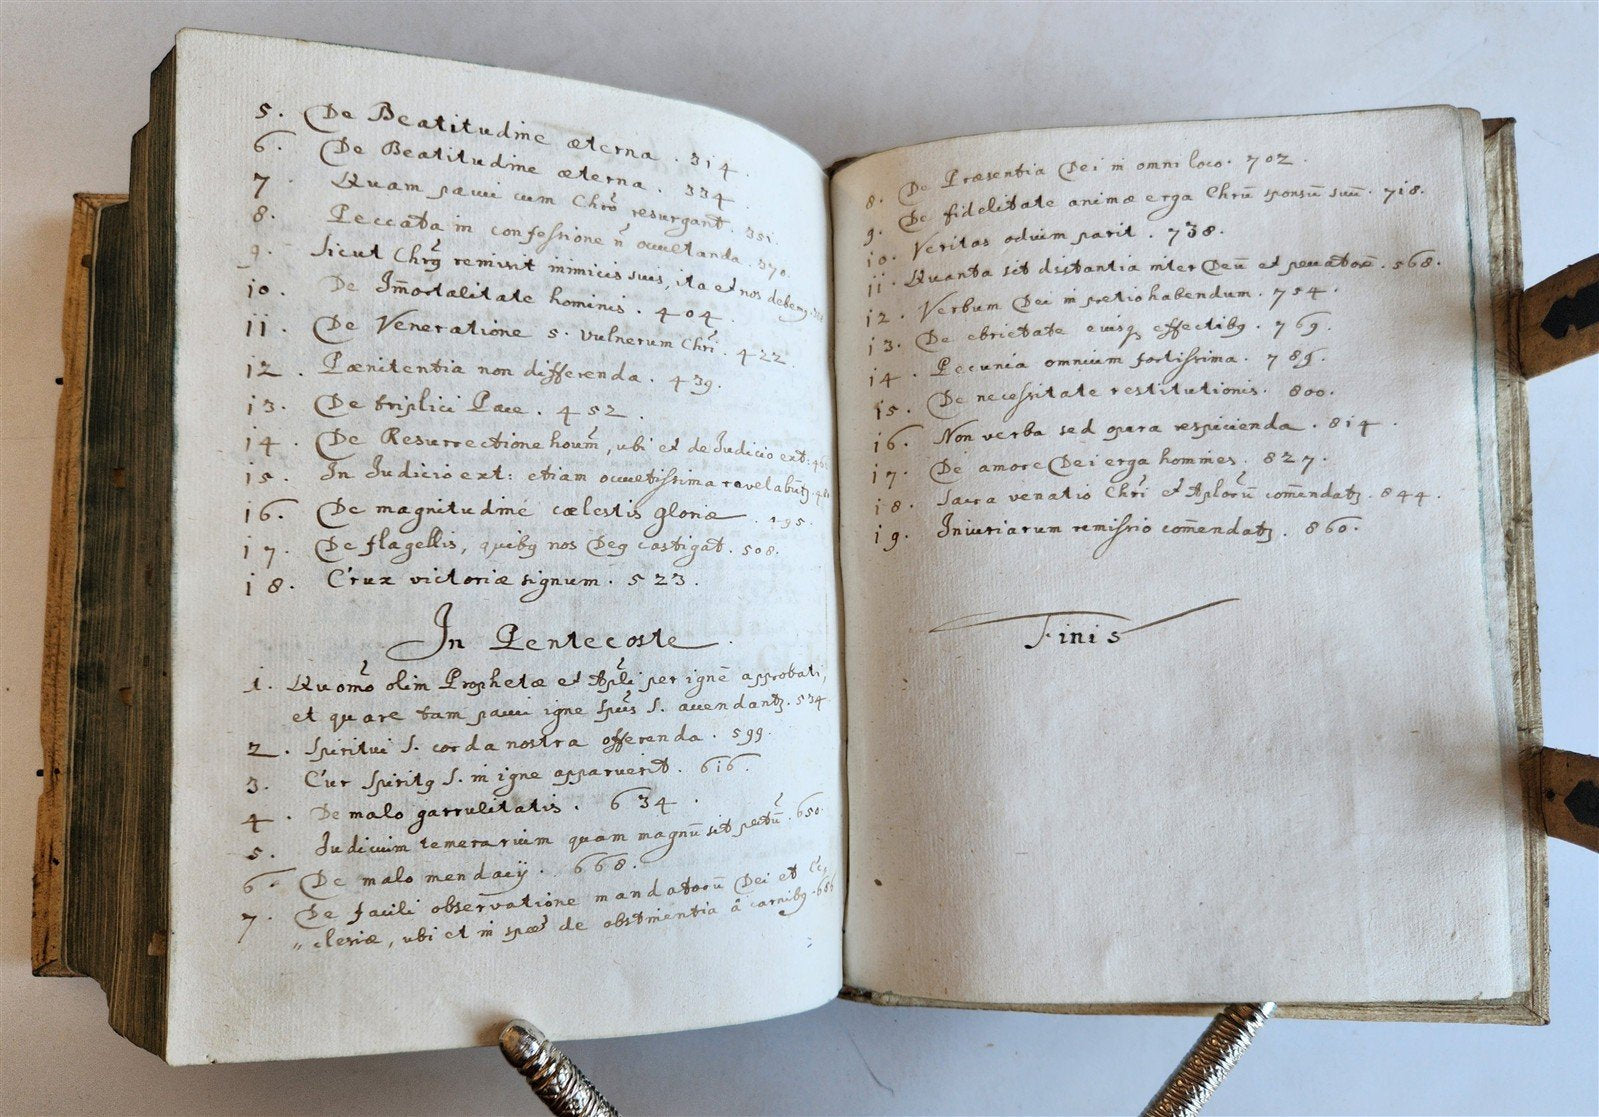 5. De Beatitudine æterna. 314.
6. De Beatitudine æterna. 334.
7. Quam pauci cum Chrõ resurgant. 351.
8. Peccata in confessione ñ occultanda. 370.
9. Sicut Chrq remisit inimicis suis, ita et nos debemq.
10. De Im̃ortalitate hominis. 404.
11. De Veneratione 5. vulnerum Chri̅. 422.
12. Pœnitentia non differenda. 439.
13. De triplici Pace. 452.
14. De Resurrectione houm̅, ubi et de Judicio ext:
15. In Judicio ext: etiam occultissima revelabũtʒ.
16. De magnitudine cœlestis gloriæ. 495.
17. De flagellis, quibq nos Deq castigat. 508.
18. Crux victoriæ signum. 523.
In Pentecoste.
1. Quomo̅ olim Prophetæ et Apl̅i per ignẽ approbati,
et quare tam pauci igne Spũs S. accendantʒ. 534.
2. Spiritui S. corda nostra offerenda. 599.
3. Cur Spiritq S. in igne apparuerit. 616.
4. De malo garrulitatis. 634.
5. Judicium temerarium quam magnũ sit pctũ. 650.
6. De malo mendacij. 668.
7. De facili observatione mandatorũ Dei et Ec„
„clesiæ, ubi et in spæ̅ de abstinentia â carnibq. 686
8. De Præsentia Dei in omni loco. 702.
9. De fidelitate animæ erga Chrũ sponsũ suũ. 718.
10. Veritas odium parit. 738.
11. Quanta sit distantia inter Deũ et peccatorẽ. 568.
12. Verbum Dei in pretio habendum. 754.
13. De ebrietate eiusq effectibq. 769.
14. Pecunia omnium fortissima. 789.
15. De necessitate restitutionis. 800.
16. Non verba sed opera respicienda. 814.
17. De amore Dei erga homines. 827.
18. Sacra venatio Chri̅ et Aplorũ com̃endatʒ. 844.
19. Iniuriarum remissio com̃endatʒ. 860.
Finis